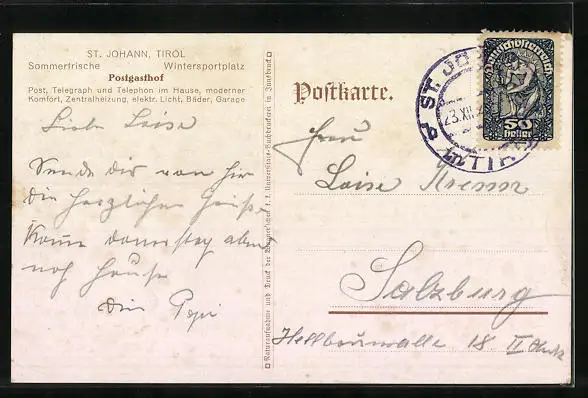 ST. JOHANN, TIROL
Sommerfrische Wintersportplatz
Postgasthof
Post, Telegraph und Telephon im Hause, moderner
Komfort, Zentralheizung, elektr. Licht, Bäder, Garage
Liebe Loise
Sende dir von hir
die herzlichen Grüße
Komme donerstag abend
nach Hause
Dein Pepi
Naturaufnahme und Druck der Wagner'schen k. k. Universitäts-Buchdruckerei in Innsbruck
Postkarte.
Frau
Loise
Salzburg
Hellbrunnalle 18 II
Deutschösterreich
50
Heller
ST. JO
23.XII
TIR